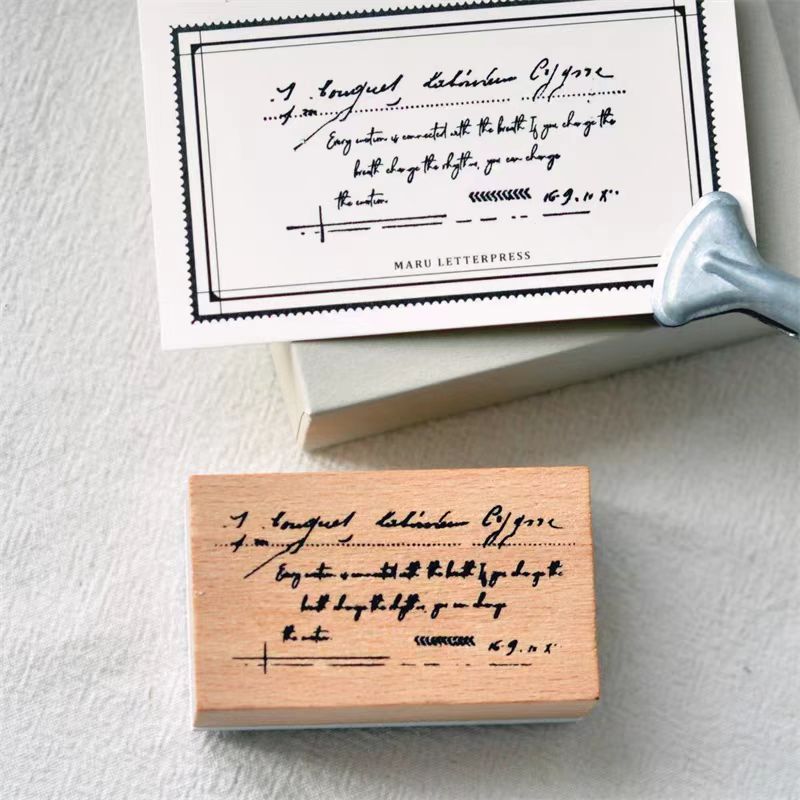 1 bouquet
Every emotion is connected with the breath If you change the
breath change the rhythm, you can change
the emotion.
16.9.10 X..
MARU LETTERPRESS
1 bouquet
Every emotion is connected with the breath If you change the
breath change the rhythm, you can change
the emotion.
16.9.10 X..